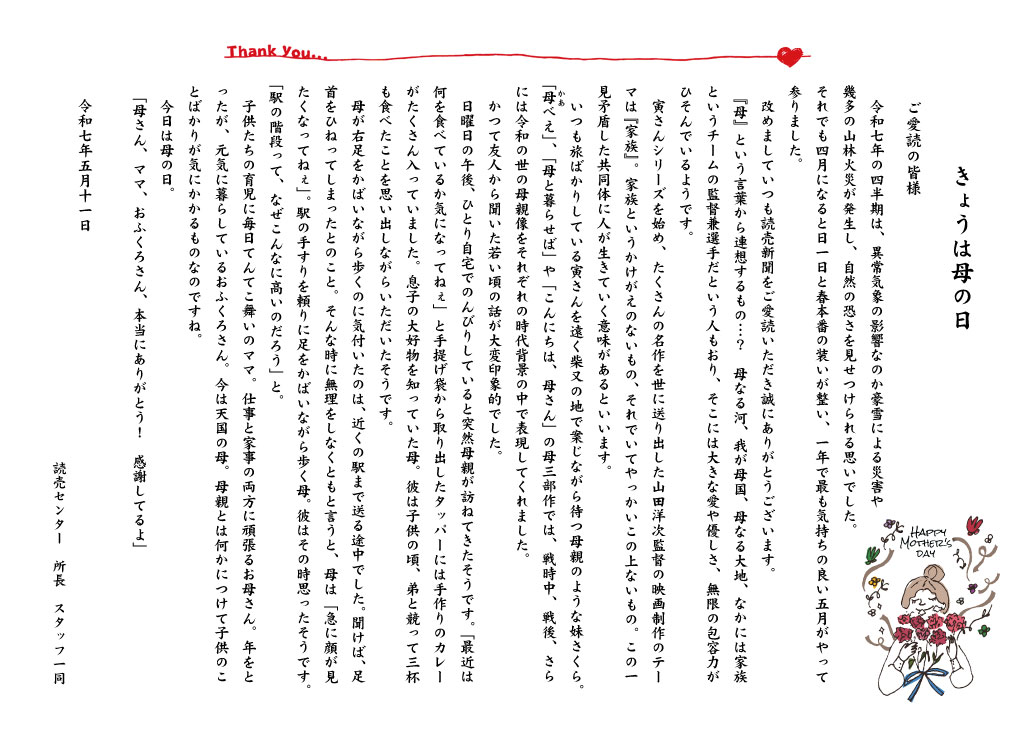 Thank You...
きょうは母の日
ご愛読の皆様
令和七年の四半期は、異常気象の影響なのか豪雪による災害や
幾多の山林火災が発生し、自然の恐さを見せつけられる思いでした。
それでも四月になると日一日と春本番の装いが整い、一年で最も気持ちの良い五月がやって
参りました。
改めましていつも読売新聞をご愛読いただき誠にありがとうございます。
『母』という言葉から連想するもの…？　母なる河、我が母国、母なる大地、なかには家族
というチームの監督兼選手だという人もおり、そこには大きな愛や優しさ、無限の包容力が
ひそんでいるようです。
寅さんシリーズを始め、たくさんの名作を世に送り出した山田洋次監督の映画制作のテー
マは『家族』。家族というかけがえのないもの、それでいてやっかいこの上ないもの。この一
見矛盾した共同体に人が生きていく意味があるといいます。
いつも旅ばかりしている寅さんを遠く柴又の地で案じながら待つ母親のような妹さくら。
「母べえ」、「母と暮らせば」や「こんにちは、母さん」の母三部作では、戦時中、戦後、さら
かあ
には令和の世の母親像をそれぞれの時代背景の中で表現してくれました。
かつて友人から聞いた若い頃の話が大変印象的でした。
日曜日の午後、ひとり自宅でのんびりしていると突然母親が訪ねてきたそうです。「最近は
何を食べているか気になってねぇ」と手提げ袋から取り出したタッパーには手作りのカレー
がたくさん入っていました。息子の大好物を知っていた母。彼は子供の頃、弟と競って三杯
も食べたことを思い出しながらいただいたそうです。
母が右足をかばいながら歩くのに気付いたのは、近くの駅まで送る途中でした。聞けば、足
首をひねってしまったとのこと。そんな時に無理をしなくともと言うと、母は「急に顔が見
たくなってねぇ」。駅の手すりを頼りに足をかばいながら歩く母。彼はその時思ったそうです。
「駅の階段って、なぜこんなに高いのだろう」と。
子供たちの育児に毎日てんてこ舞いのママ。仕事と家事の両方に頑張るお母さん。年をと
ったが、元気に暮らしているおふくろさん。今は天国の母。母親とは何かにつけて子供のこ
とばかりが気にかかるものなのですね。
今日は母の日。
「母さん、ママ、おふくろさん、本当にありがとう！　感謝してるよ」
令和七年五月十一日
読売センター　所長　スタッフ一同
HAPPY
MOTHER'S
DAY